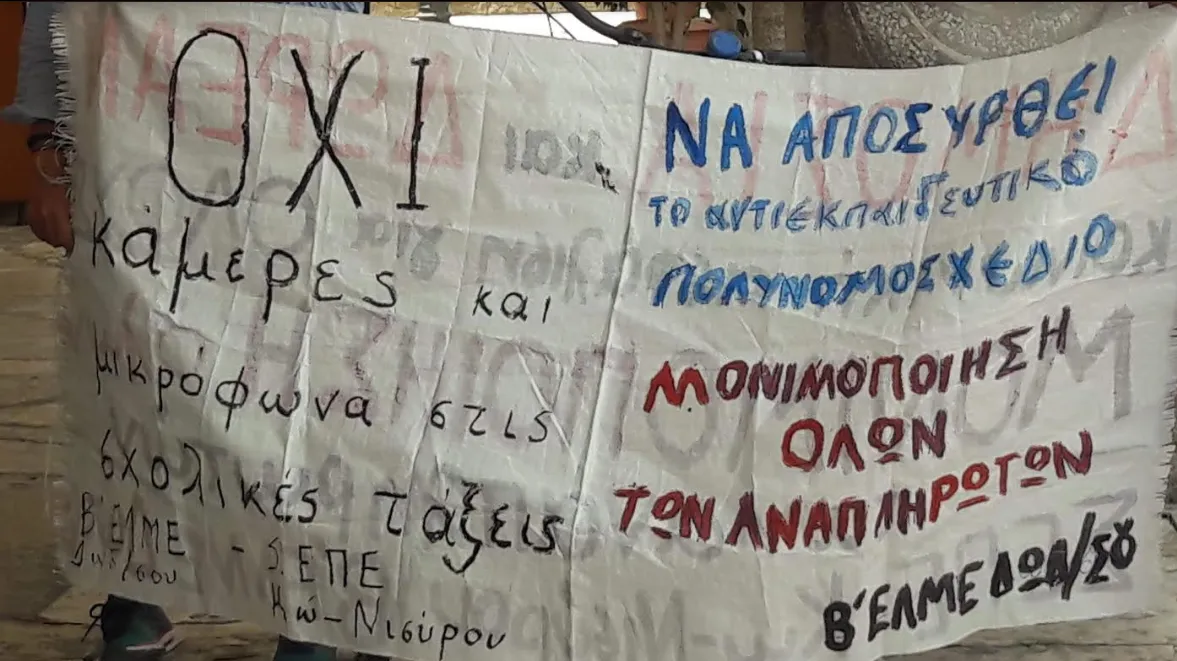 ΟΧΙ
κάμερες και
μικρόφωνα στις
σχολικές τάξεις
Β'ΕΛΜΕ - Σ.ΕΠΕ
Δωδ/σου Κω-Νισύρου
ΝΑ ΑΠΟΣΥΡΘΕΙ
ΤΟ αντιεκπαιδευτικό
ΠΟΛΥΝΟΜΟΣΧΕΔΙΟ
ΜΟΝΙΜΟΠΟΙΗΣΗ
ΟΛΩΝ
ΤΩΝ ΑΝΑΠΛΗΡΩΤΩΝ
Β'ΕΛΜΕ ΔΩΔ/ΣΟΥ